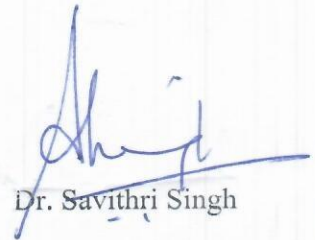 Dr. Savithri Singh